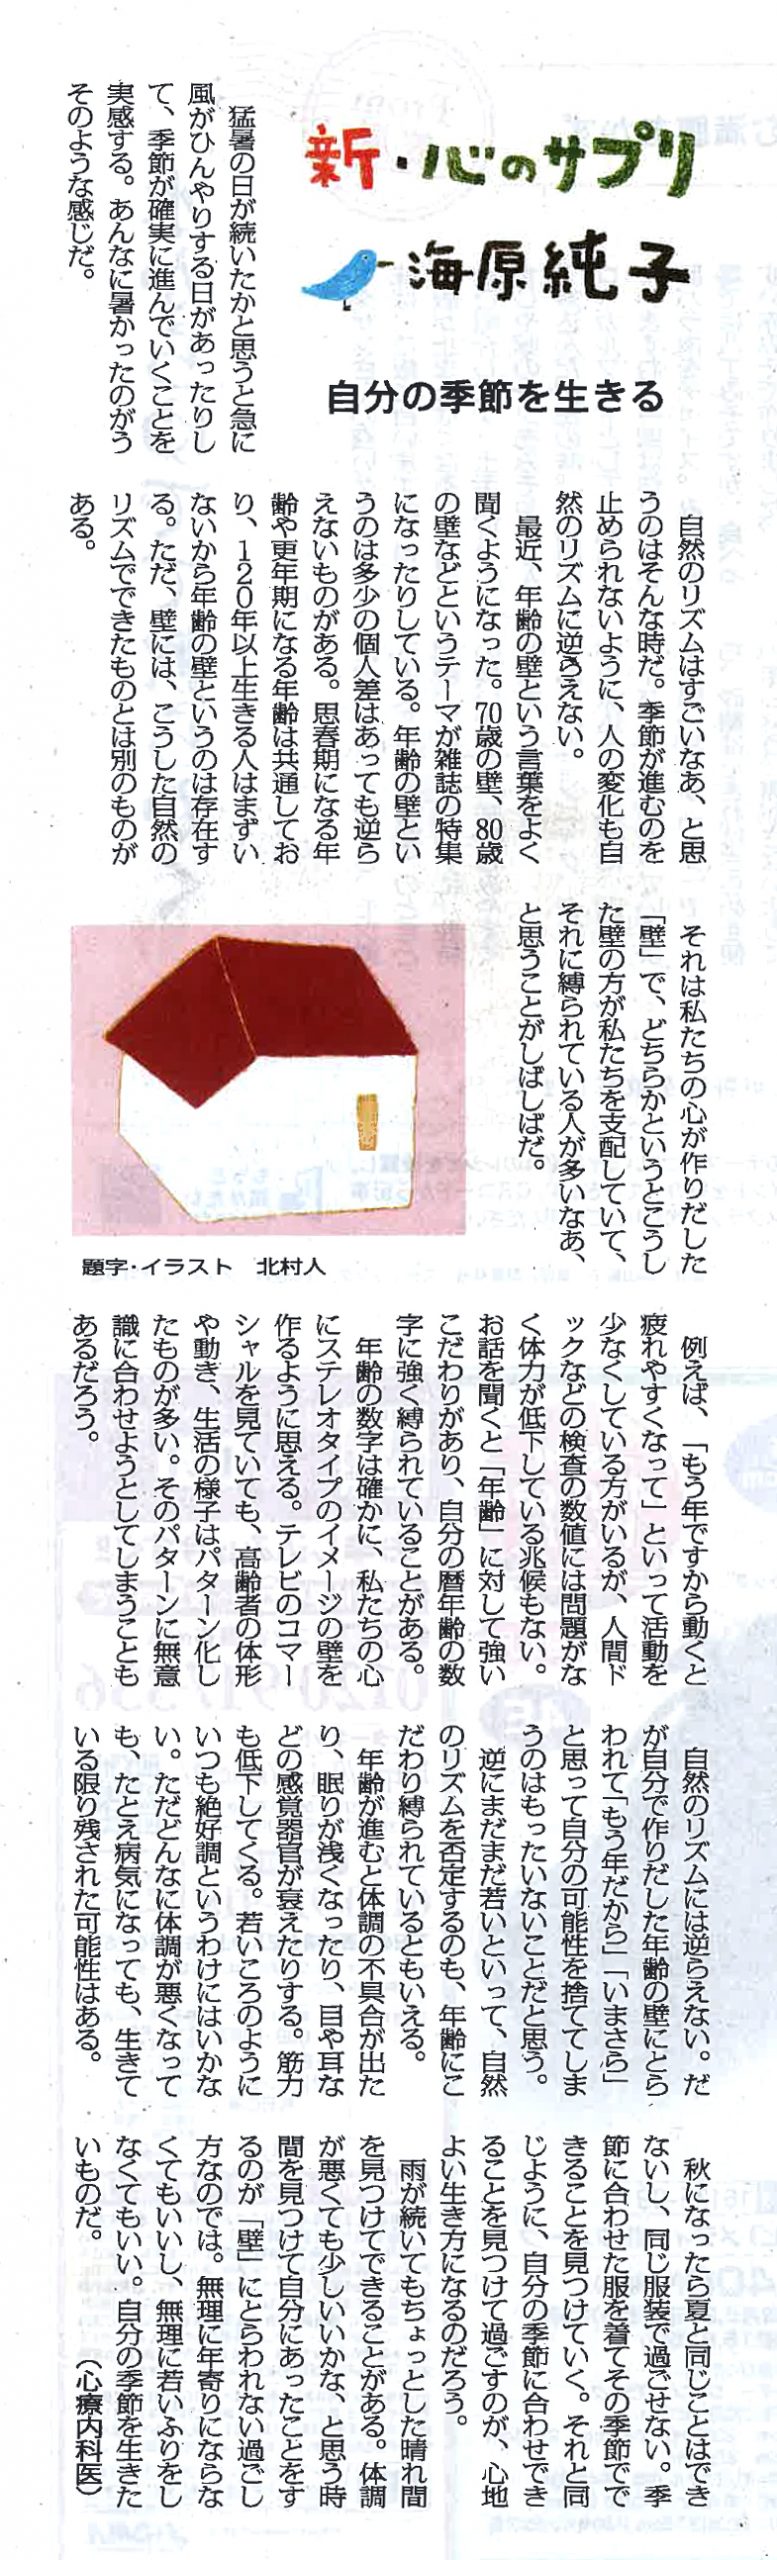 新・心のサプリ
海原純子
自分の季節を生きる
猛暑の日が続いたかと思うと急に
風がひんやりする日があったりし
て、季節が確実に進んでいくことを
実感する。あんなに暑かったのがう
そのような感じだ。
自然のリズムはすごいなあ、と思
うのはそんな時だ。季節が進むのを
止められないように、人の変化も自
然のリズムに逆らえない。
最近、年齢の壁という言葉をよく
聞くようになった。70歳の壁、80歳
の壁などというテーマが雑誌の特集
になったりしている。年齢の壁とい
うのは多少の個人差はあっても逆ら
えないものがある。思春期になる年
齢や更年期になる年齢は共通してお
り、120年以上生きる人はまずい
ないから年齢の壁というのは存在す
る。ただ、壁には、こうした自然の
リズムでできたものとは別のものが
ある。
それは私たちの心が作りだした
「壁」で、どちらかというとこうし
た壁の方が私たちを支配していて、
それに縛られている人が多いなあ、
と思うことがしばしばだ。
題字・イラスト 北村人
例えば、「もう年ですから動くと
疲れやすくなって」といって活動を
少なくしている方がいるが、人間ド
ックなどの検査の数値には問題がな
く体力が低下している兆候もない。
お話を聞くと「年齢」に対して強い
こだわりがあり、自分の暦年齢の数
字に強く縛られていることがある。
年齢の数字は確かに、私たちの心
にステレオタイプのイメージの壁を
作るように思える。テレビのコマー
シャルを見ていても、高齢者の体形
や動き、生活の様子はパターン化し
たものが多い。そのパターンに無意
識に合わせようとしてしまうことも
あるだろう。
自然のリズムには逆らえない。だ
が自分で作りだした年齢の壁にとら
われて「もう年だから」「いまさら」
と思って自分の可能性を捨ててしま
うのはもったいないことだと思う。
逆にまだまだ若いといって、自然
のリズムを否定するのも、年齢にこ
だわり縛られているともいえる。
年齢が進むと体調の不具合が出た
り、眠りが浅くなったり、目や耳な
どの感覚器官が衰えたりする。筋力
も低下してくる。若いころのように
いつも絶好調というわけにはいかな
い。ただどんなに体調が悪くなって
も、たとえ病気になっても、生きて
いる限り残された可能性はある。
秋になったら夏と同じことはでき
ないし、同じ服装で過ごせない。季
節に合わせた服を着てその季節でで
きることを見つけていく。それと同
じように、自分の季節に合わせでき
ることを見つけて過ごすのが、心地
よい生き方になるのだろう。
雨が続いてもちょっとした晴れ間
を見つけてできることがある。体調
が悪くても少しいいかな、と思う時
間を見つけて自分にあったことをす
るのが「壁」にとらわれない過ごし
方なのでは。無理に年寄りにならな
くてもいいし、無理に若いふりをし
なくてもいい。自分の季節を生きた
いものだ。
（心療内科医）